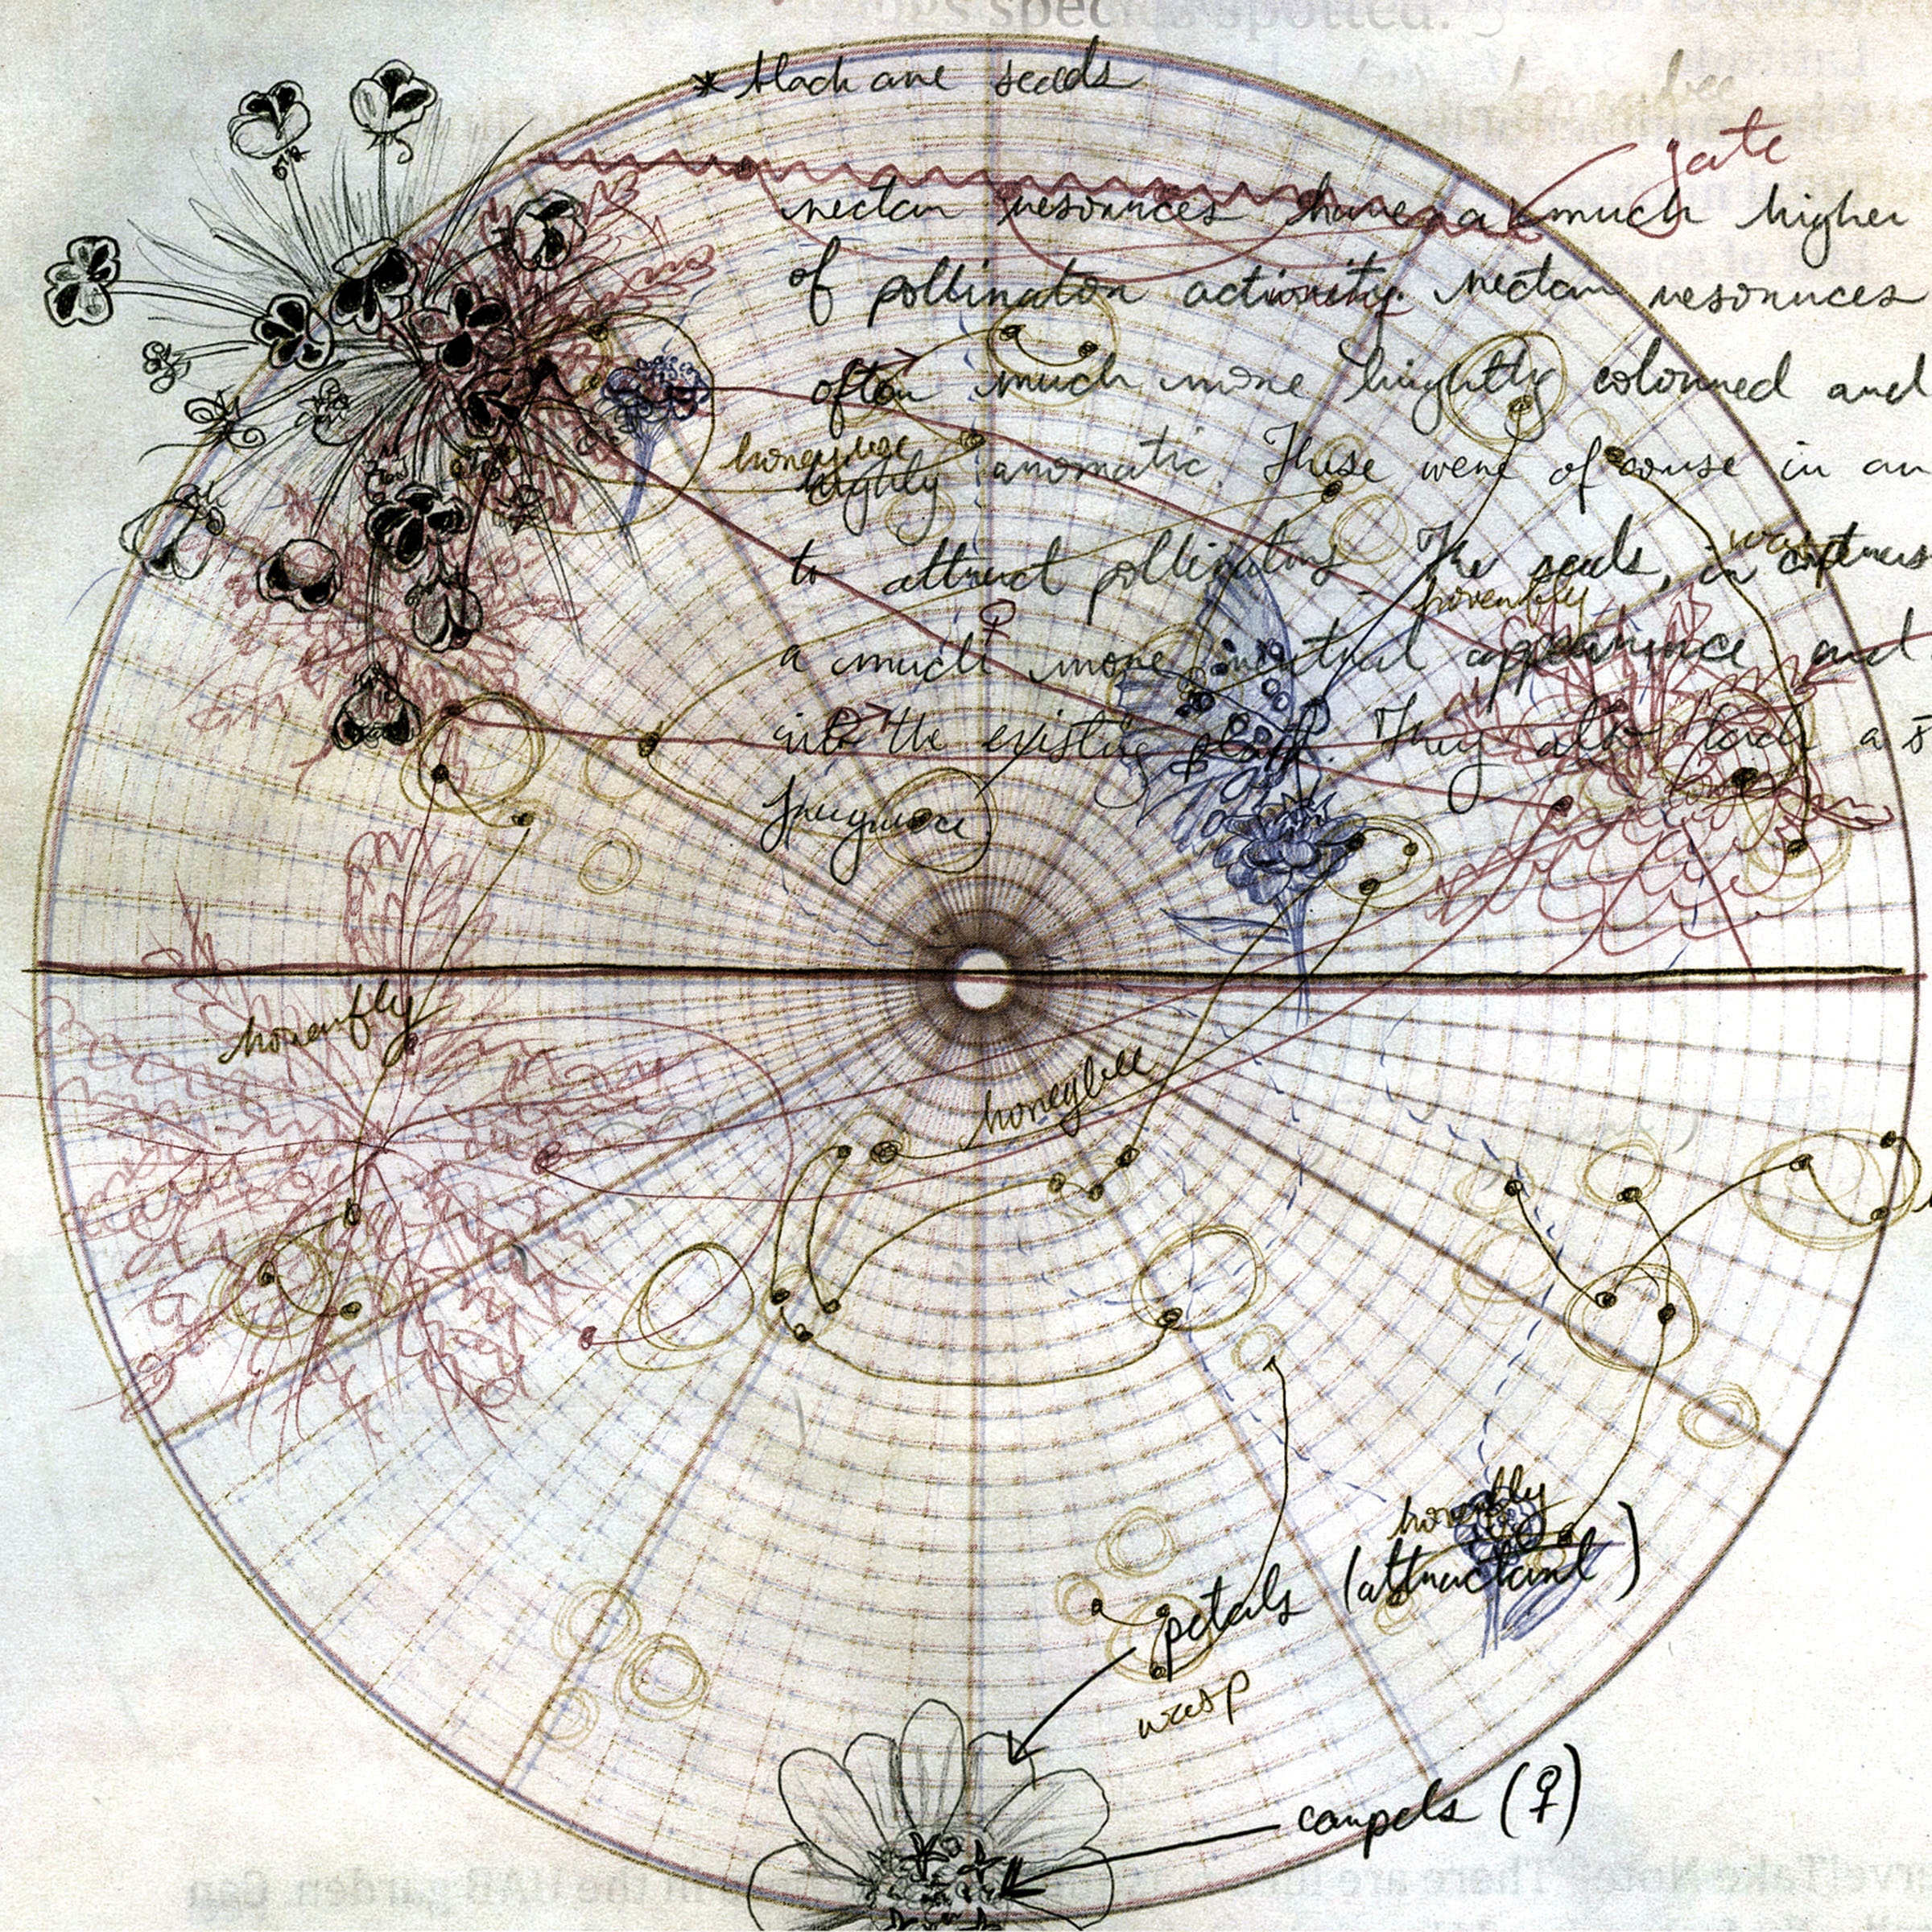 species spotted.
* black are seeds
bee
gate
nectar resources have a much higher
of pollinator activity. Nectar resources
often much more brightly coloured and
honeybee
highly aromatic. These were of course in an
wasp
to attract pollinators. The seeds, in
hoverfly
♀
a much more neutral appearance and
into the existing plant. They also lack a
fragrance
hoverfly
honeybee
hoverfly
petals (attractant)
wasp
carpels (♀)
Take Note! There are in the garden. Can